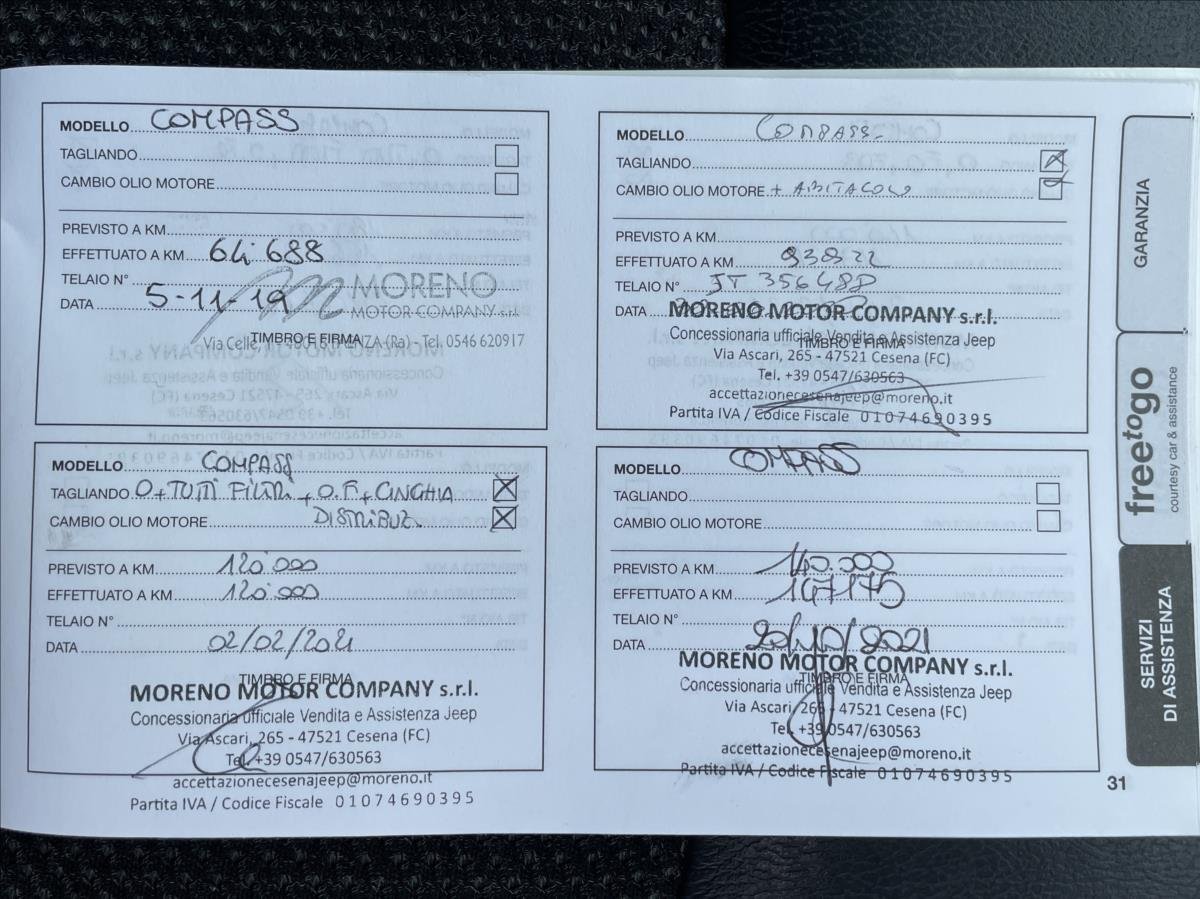 MODELLO COMPASS
TAGLIANDO
CAMBIO OLIO MOTORE
PREVISTO A KM
EFFETTUATO A KM 64.688
TELAIO N°
DATA 5-11-19
MORENO
MOTOR COMPANY s.r.l.
TIMBRO E FIRMA
Via Celle, (Ra) - Tel. 0546 620917
MODELLO COMPASS
TAGLIANDO
CAMBIO OLIO MOTORE + ABITACOLO
PREVISTO A KM
EFFETTUATO A KM 93922
TELAIO N° JT 356488
DATA
MORENO MOTOR COMPANY s.r.l.
TIMBRO E FIRMA
Concessionaria ufficiale Vendita e Assistenza Jeep
Via Ascari, 265 - 47521 Cesena (FC)
Tel. +39 0547/630563
accettazionecesenajeep@moreno.it
Partita IVA / Codice Fiscale 01074690395
MODELLO COMPASS
TAGLIANDO O + TUTTI FILTRI + O.F + CINGHIA
CAMBIO OLIO MOTORE DISTRIBUZ.
PREVISTO A KM 120.000
EFFETTUATO A KM 120.000
TELAIO N°
DATA 02/02/2021
TIMBRO E FIRMA
MORENO MOTOR COMPANY s.r.l.
Concessionaria ufficiale Vendita e Assistenza Jeep
Via Ascari, 265 - 47521 Cesena (FC)
Tel. +39 0547/630563
accettazionecesenajeep@moreno.it
Partita IVA / Codice Fiscale 01074690395
MODELLO COMPASS
TAGLIANDO
CAMBIO OLIO MOTORE
PREVISTO A KM 140.000
EFFETTUATO A KM 147175
TELAIO N°
DATA 20/10/2021
MORENO MOTOR COMPANY s.r.l.
TIMBRO E FIRMA
Concessionaria ufficiale Vendita e Assistenza Jeep
Via Ascari, 265 - 47521 Cesena (FC)
Tel. +39 0547/630563
accettazionecesenajeep@moreno.it
Partita IVA / Codice Fiscale 01074690395
GARANZIA
freetogo
courtesy car & assistance
SERVIZI
DI ASSISTENZA
31